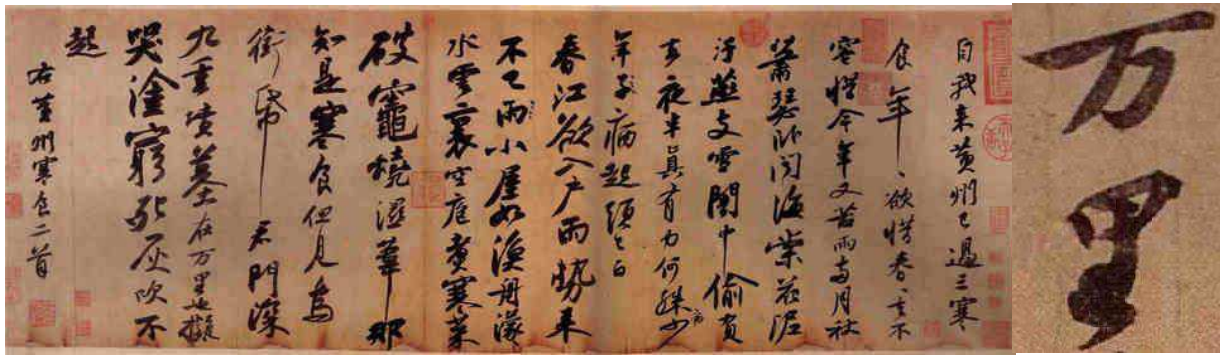 自我來黄州已過三寒
食年〻欲惜春〻去不
容惜今年又苦雨兩月秋
蕭瑟卧聞海棠花泥
汙燕支雪闇中偷負
去夜半真有力何殊少
年子病起頭已白
春江欲入户雨勢來
不已雨小屋如漁舟濛〻
水雲裏空庖煮寒菜
破竈燒濕葦那
知是寒食但見烏
銜帋君門深
九重墳墓在万里也擬
哭塗窮死灰吹不
起
右黄州寒食二首
万里